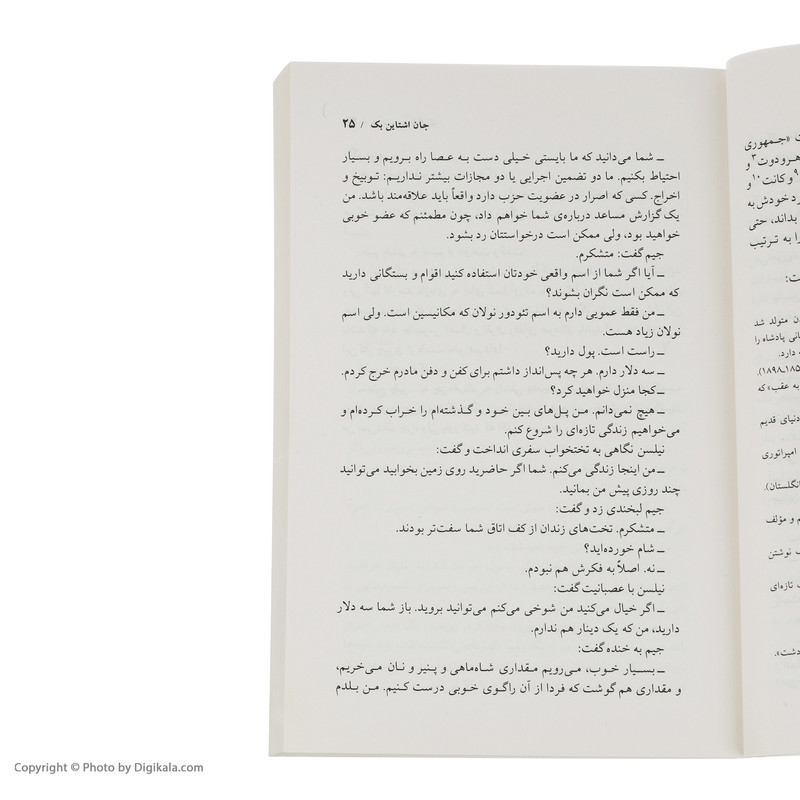 جان اشتاین بک / ۲۵
ــ شما می‌دانید که ما بایستی خیلی دست به عصا راه برویم و بسیار
احتیاط بکنیم. ما دو تضمین اجرایی یا دو مجازات بیشتر نداریم: توبیخ و
اخراج. کسی که اصرار در عضویت حزب دارد واقعاً باید علاقه‌مند باشد. من
یک گزارش مساعد درباره‌ی شما خواهم داد، چون مطمئنم که عضو خوبی
خواهید بود، ولی ممکن است درخواستتان رد بشود.
جیم گفت: متشکرم.
ــ آیا اگر شما از اسم واقعی خودتان استفاده کنید اقوام و بستگانی دارید
که ممکن است نگران بشوند؟
ــ من فقط عمویی دارم به اسم تئودور نولان که مکانیسین است. ولی اسم
نولان زیاد هست.
ــ راست است. پول دارید؟
ــ سه دلار دارم. هر چه پس‌انداز داشتم برای کفن و دفن مادرم خرج کردم.
ــ کجا منزل خواهید کرد؟
ــ هیچ نمی‌دانم. من پل‌های بین خود و گذشته‌ام را خراب کرده‌ام و
می‌خواهیم زندگی تازه‌ای را شروع کنم.
نیلسن نگاهی به تختخواب سفری انداخت و گفت:
ــ من اینجا زندگی می‌کنم. شما اگر حاضرید روی زمین بخوابید می‌توانید
چند روزی پیش من بمانید.
جیم لبخندی زد و گفت:
ــ متشکرم. تخت‌های زندان از کف اتاق شما سفت‌تر بودند.
ــ شام خورده‌اید؟
ــ نه. اصلاً به فکرش هم نبودم.
نیلسن با عصبانیت گفت:
ــ اگر خیال می‌کنید من شوخی می‌کنم می‌توانید بروید. باز شما سه دلار
دارید، من که یک دینار هم ندارم.
جیم به خنده گفت:
ــ بسیار خوب، می‌رویم مقداری شاه‌ماهی و پنیر و نان می‌خریم،
و مقداری هم گوشت که فردا از آن راگوی خوبی درست کنیم. من بلدم
«جمهوری
هرودوت۳ و
۹ و کانت۱۰ و
خودش به
بداند، حتی
را به ترتیب
متولد شد
پادشاه را
دارد.
۱۸۹۸).
به عقب» که
دنیای قدیم
امپراتوری
انگلستان).
و مؤلف
نوشتن
تازه‌ای
Copyright © Photo by Digikala.com